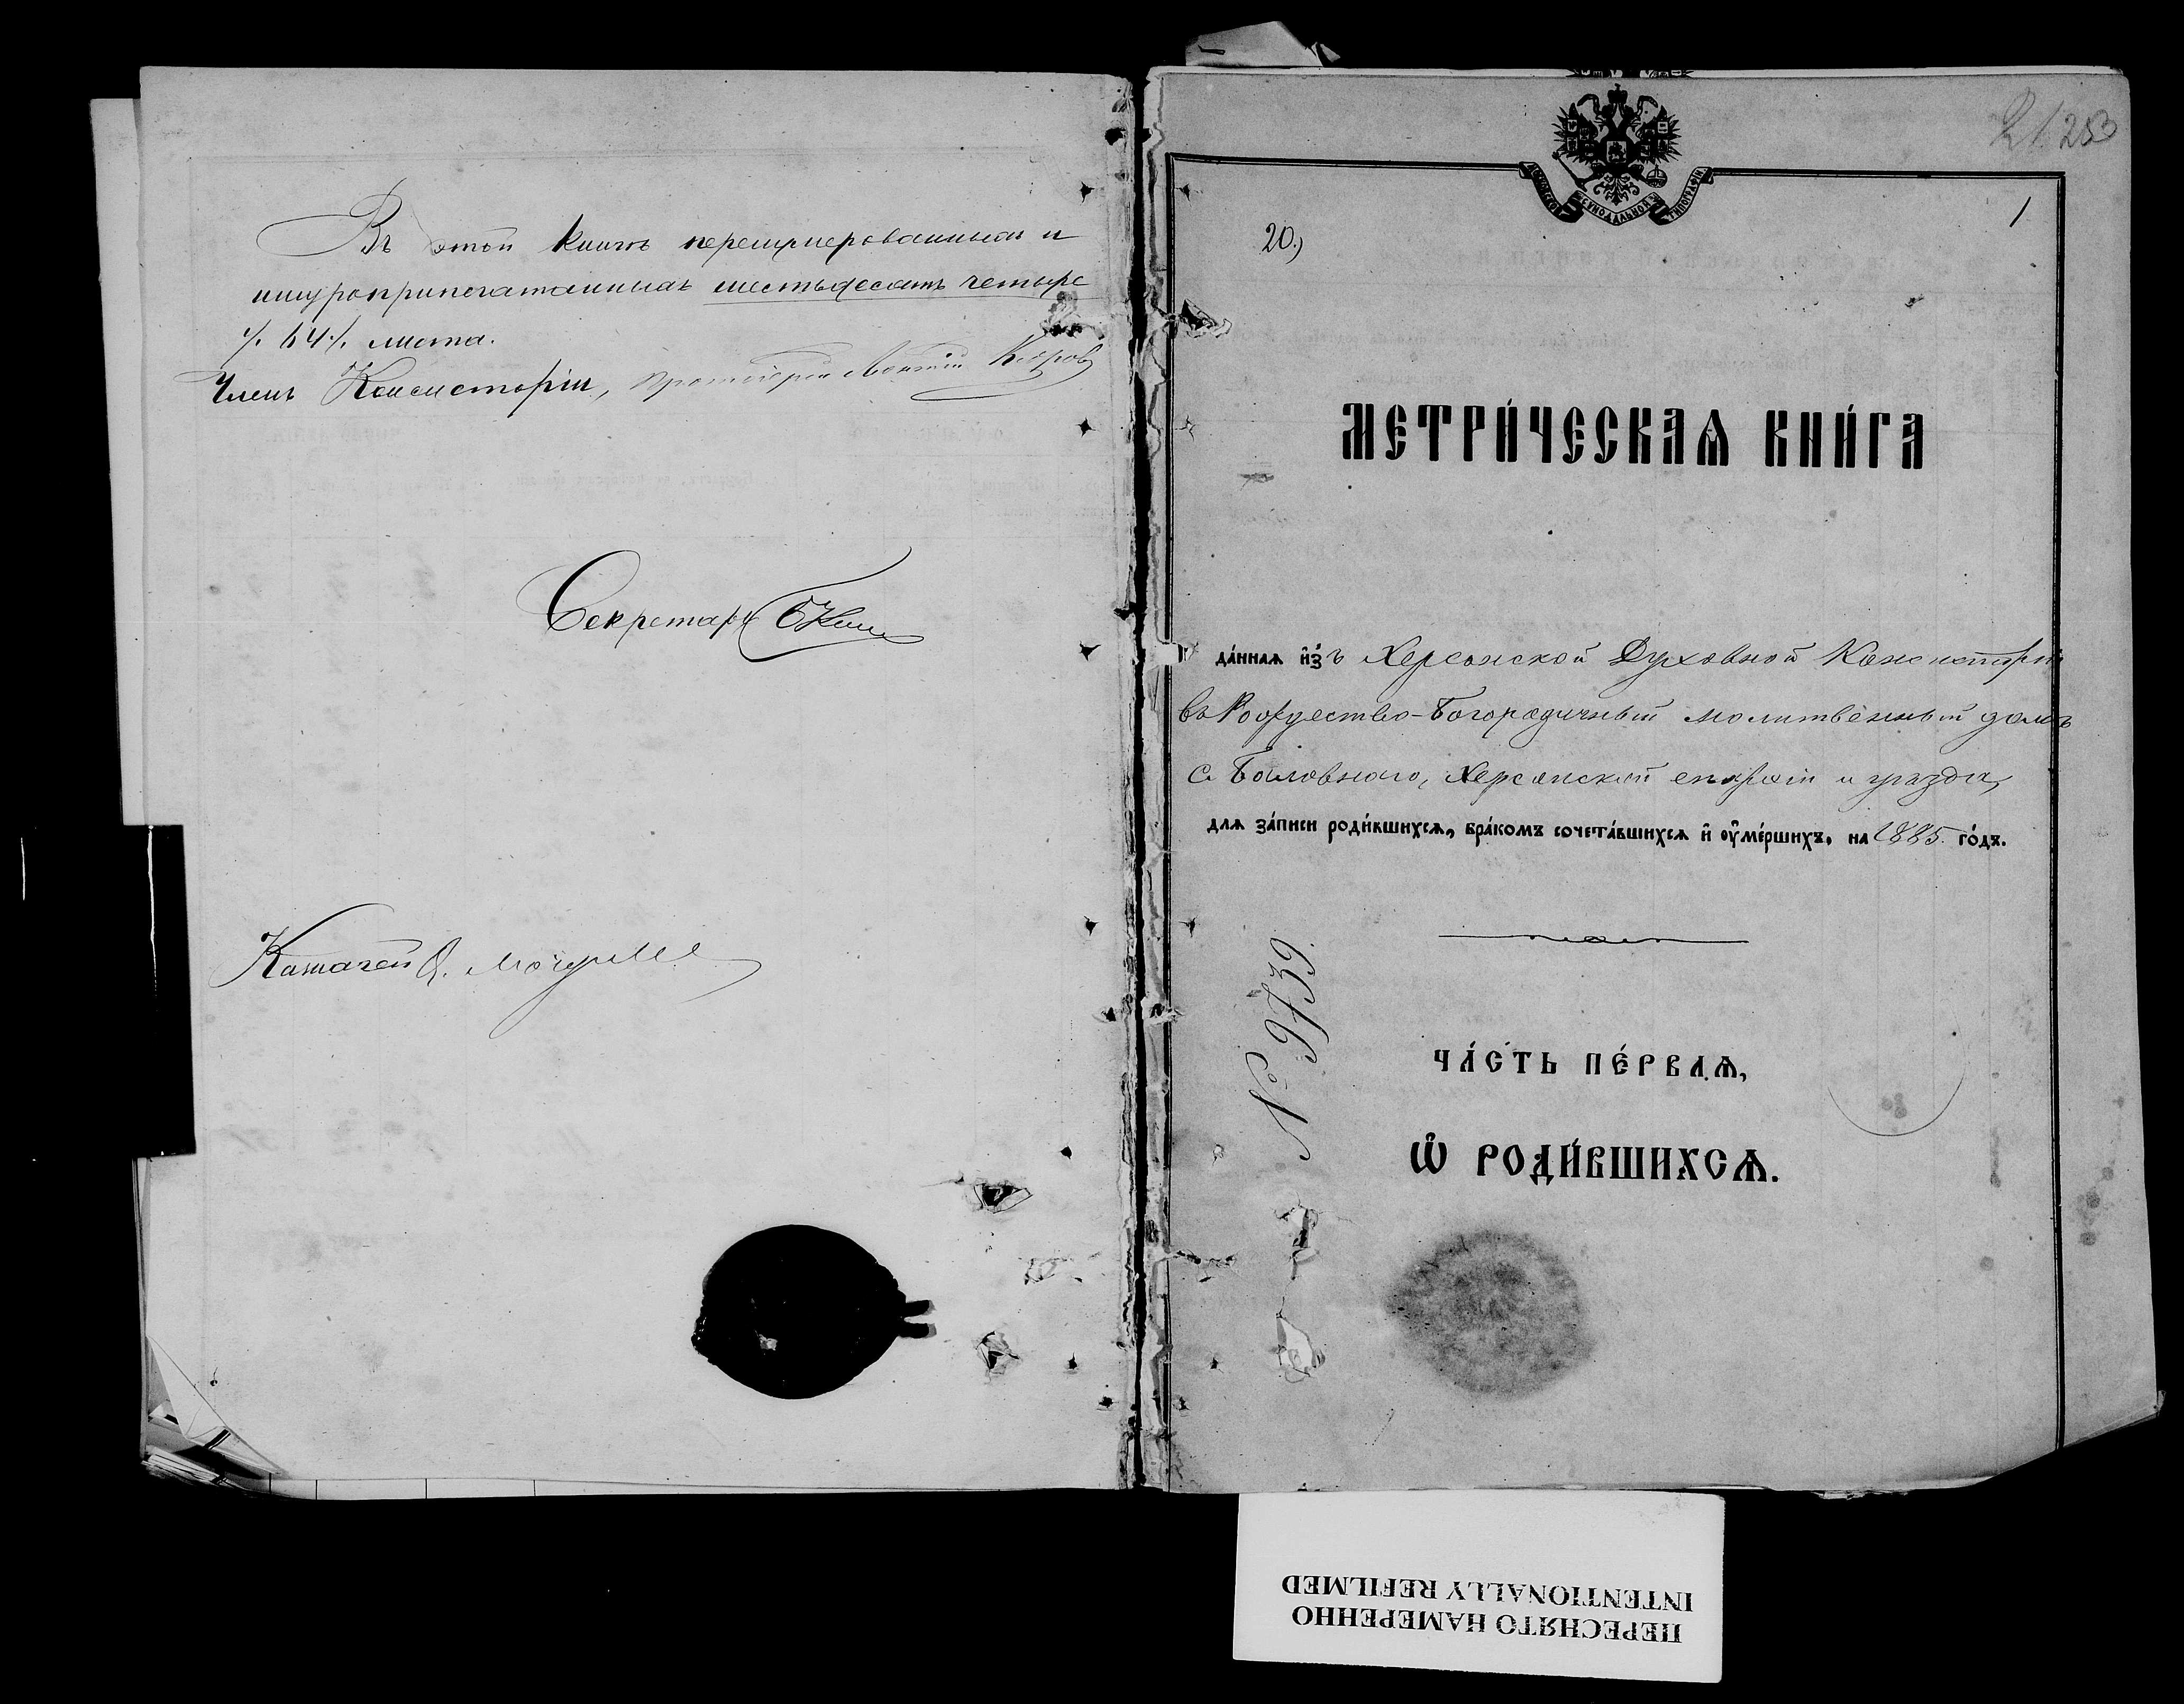 Въ этой книгѣ перенумерованныхъ и
шнуроприпечатанныхъ шестьдесятъ четыре
/. 64 /. листа.
Членъ Консисторіи, Протоіерей
Секретарь
Казначей
21 253
1
МОСКОВСКОЙ СѴНОДАЛЬНОЙ ТИПОГРАФІИ
20.)
МЕТРИ́ЧЕСКАѦ КНИ́ГА
да́ннаѧ и҆зъ Херсонской Духовной Консисторіи
въ Рождество-Богородичный молитвенный домъ
с. Баловнаго, Херсонской епархіи и уѣзда,
длѧ за́писи роди́вшихсѧ, бра́комъ сочета́вшихсѧ и҆ ᲂу҆ме́ршихъ, на 1885 го́дъ.
№ 9739.
ЧА́СТЬ ПЕ́РВАѦ,
Ѡ҆ РОДИ́ВШИХСѦ.
ПЕРЕСНЯТО НАМЕРЕННО
INTENTIONALLY REFILMED